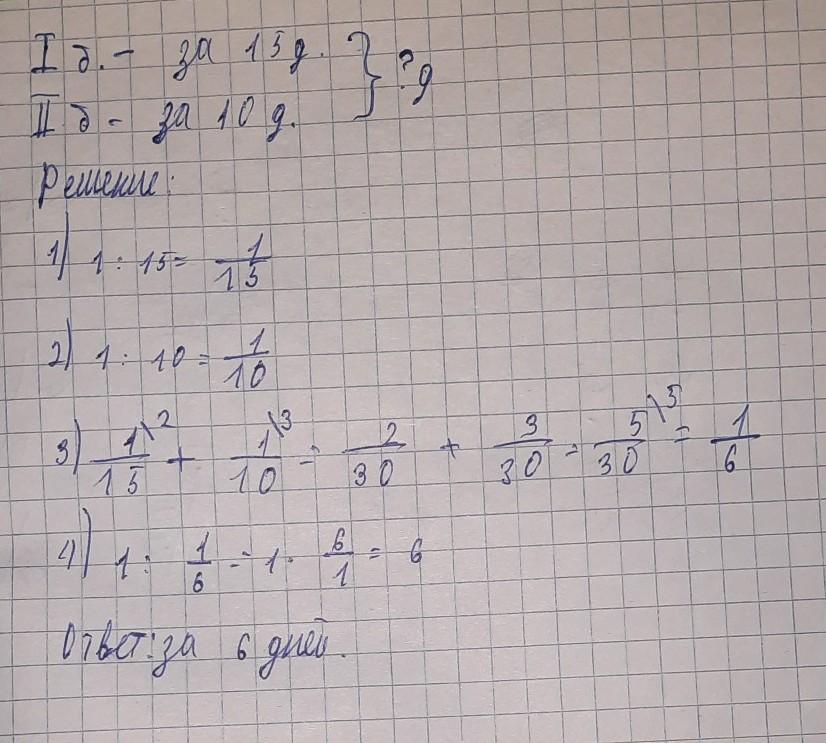 I б. - за 15 д. } ? д
II б - за 10 д.
Решение:
1) 1 : 15 = 1/15
2) 1 : 10 = 1/10
3) 1\2/15 + 1\3/10 = 2/30 + 3/30 = 5\5/30 = 1/6
4) 1 : 1/6 = 1 · 6/1 = 6
Ответ: за 6 дней.